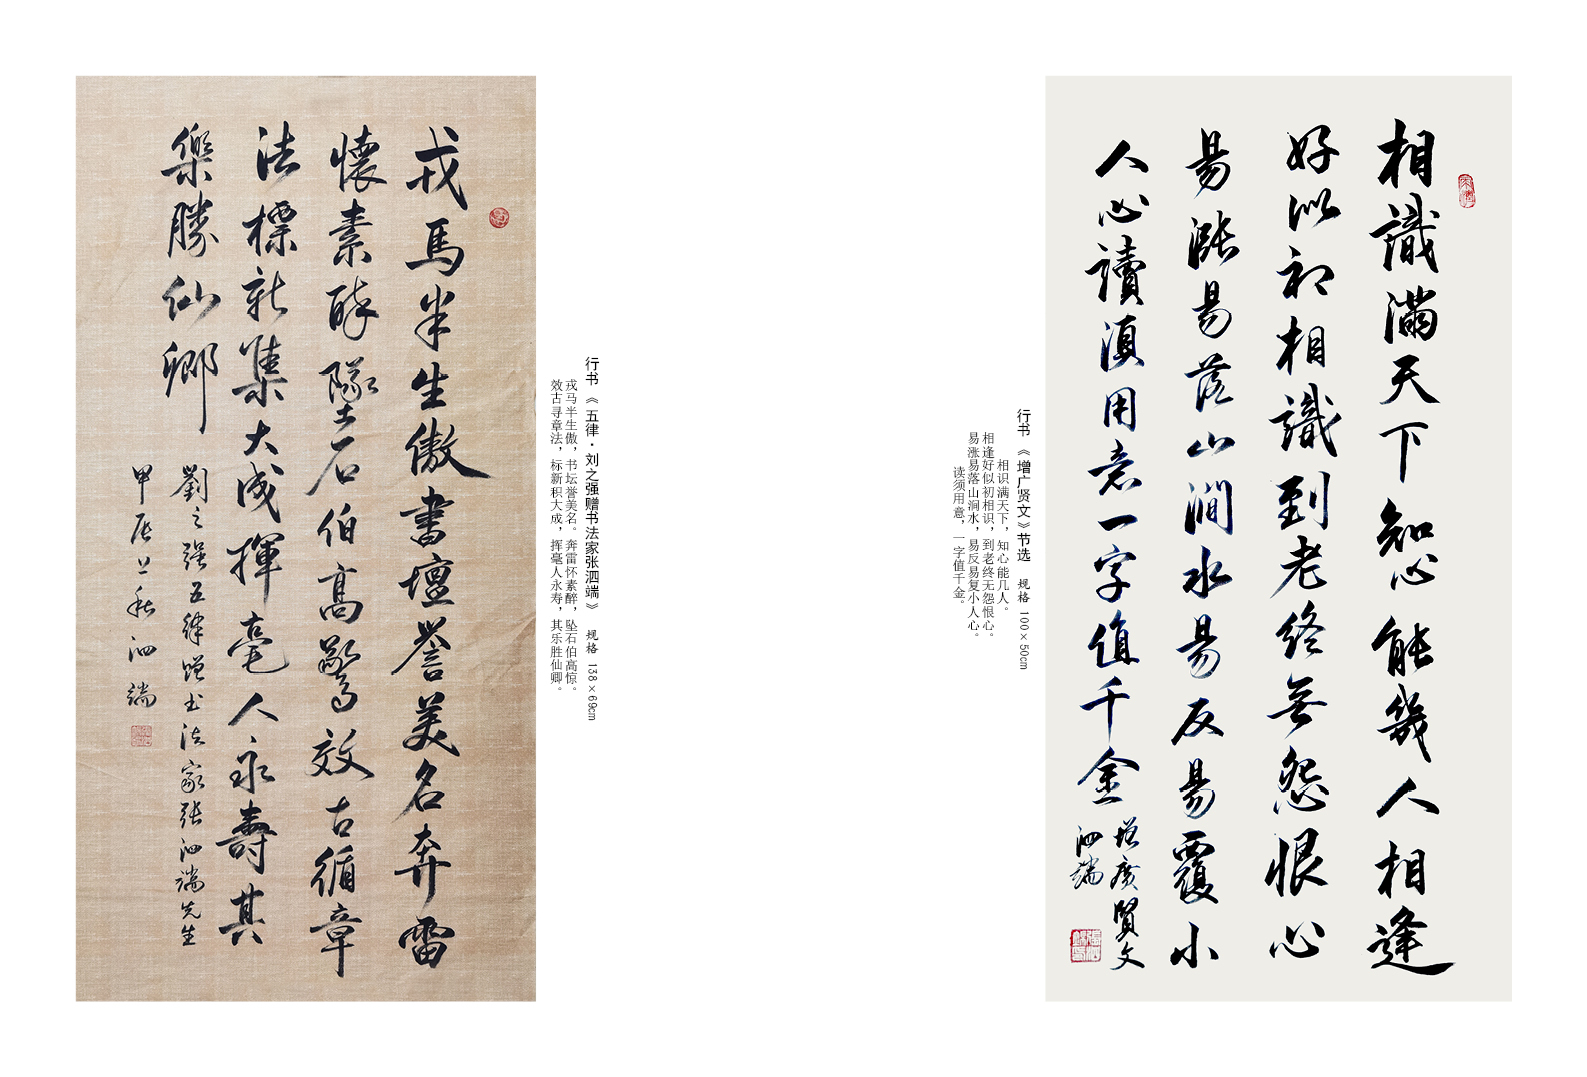 戎馬半生傲書壇譽美名奔雷
懷素醉墜石伯高驚效古循章
法標新集大成揮毫人永壽其
樂勝仙卿
劉之强五律贈书法家张泗端先生
甲辰之秋泗端
行书《五律·刘之强赠书法家张泗端》 规格 138×69cm
戎马半生傲，书坛誉美名。奔雷怀素醉，坠石伯高惊。
效古寻章法，标新积大成，挥毫人永寿，其乐胜仙卿。
相識滿天下知心能幾人相逢
好似初相識到老終無怨恨心
易漲易落山澗水易反易覆小
人心讀須用意一字值千金
增廣賢文
泗端
行书《增广贤文》节选 规格 100×50cm
相识满天下，知心能几人。
相逢好似初相识，到老终无怨恨心。
易涨易落山涧水，易反易复小人心。
读须用意，一字值千金。